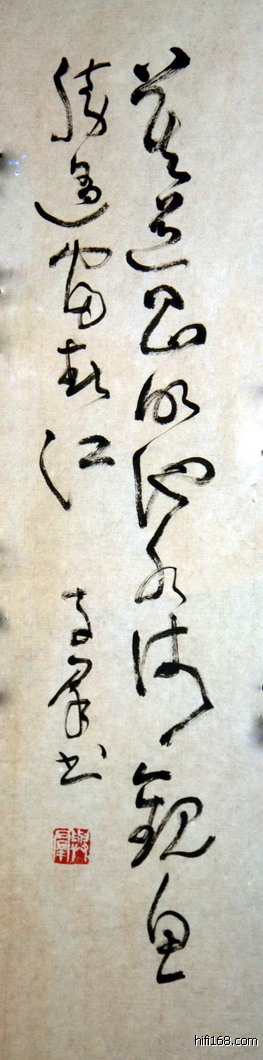 莫道昆明池水浅观鱼
胜过富春江
志群书
hifi168.com